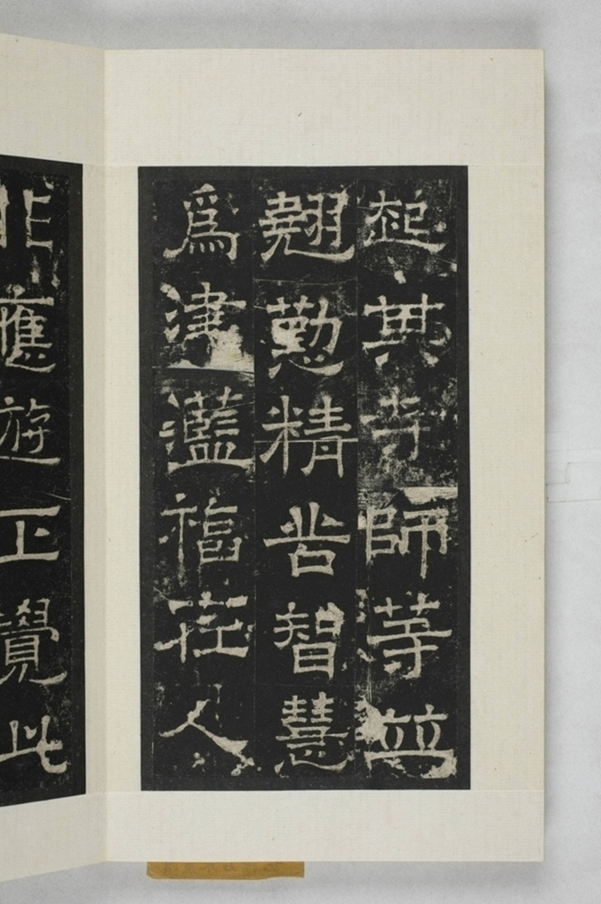 起其寺師等並
翹懃精苦智慧
爲津灆福在人
非應遊正覺此